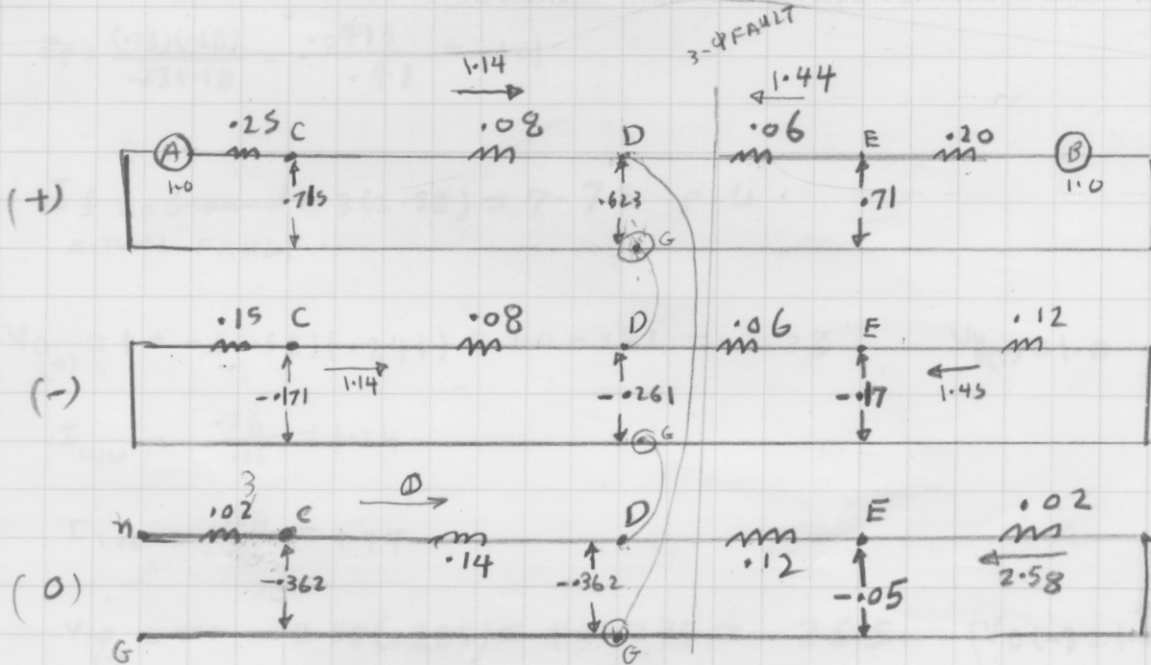 3-φ FAULT
1.14
1.44
.25 C .08 D .06 E .20
A B
(+)
1.0 .715 .623 .71 1.0
G
.15 C .08 D .06 E .12
(-)
1.14 -.171 -.261 -.17 1.45
G
3 0
n .02 C D E .02
.14 .12 2.58
(0)
-.362 -.362 -.05
G G